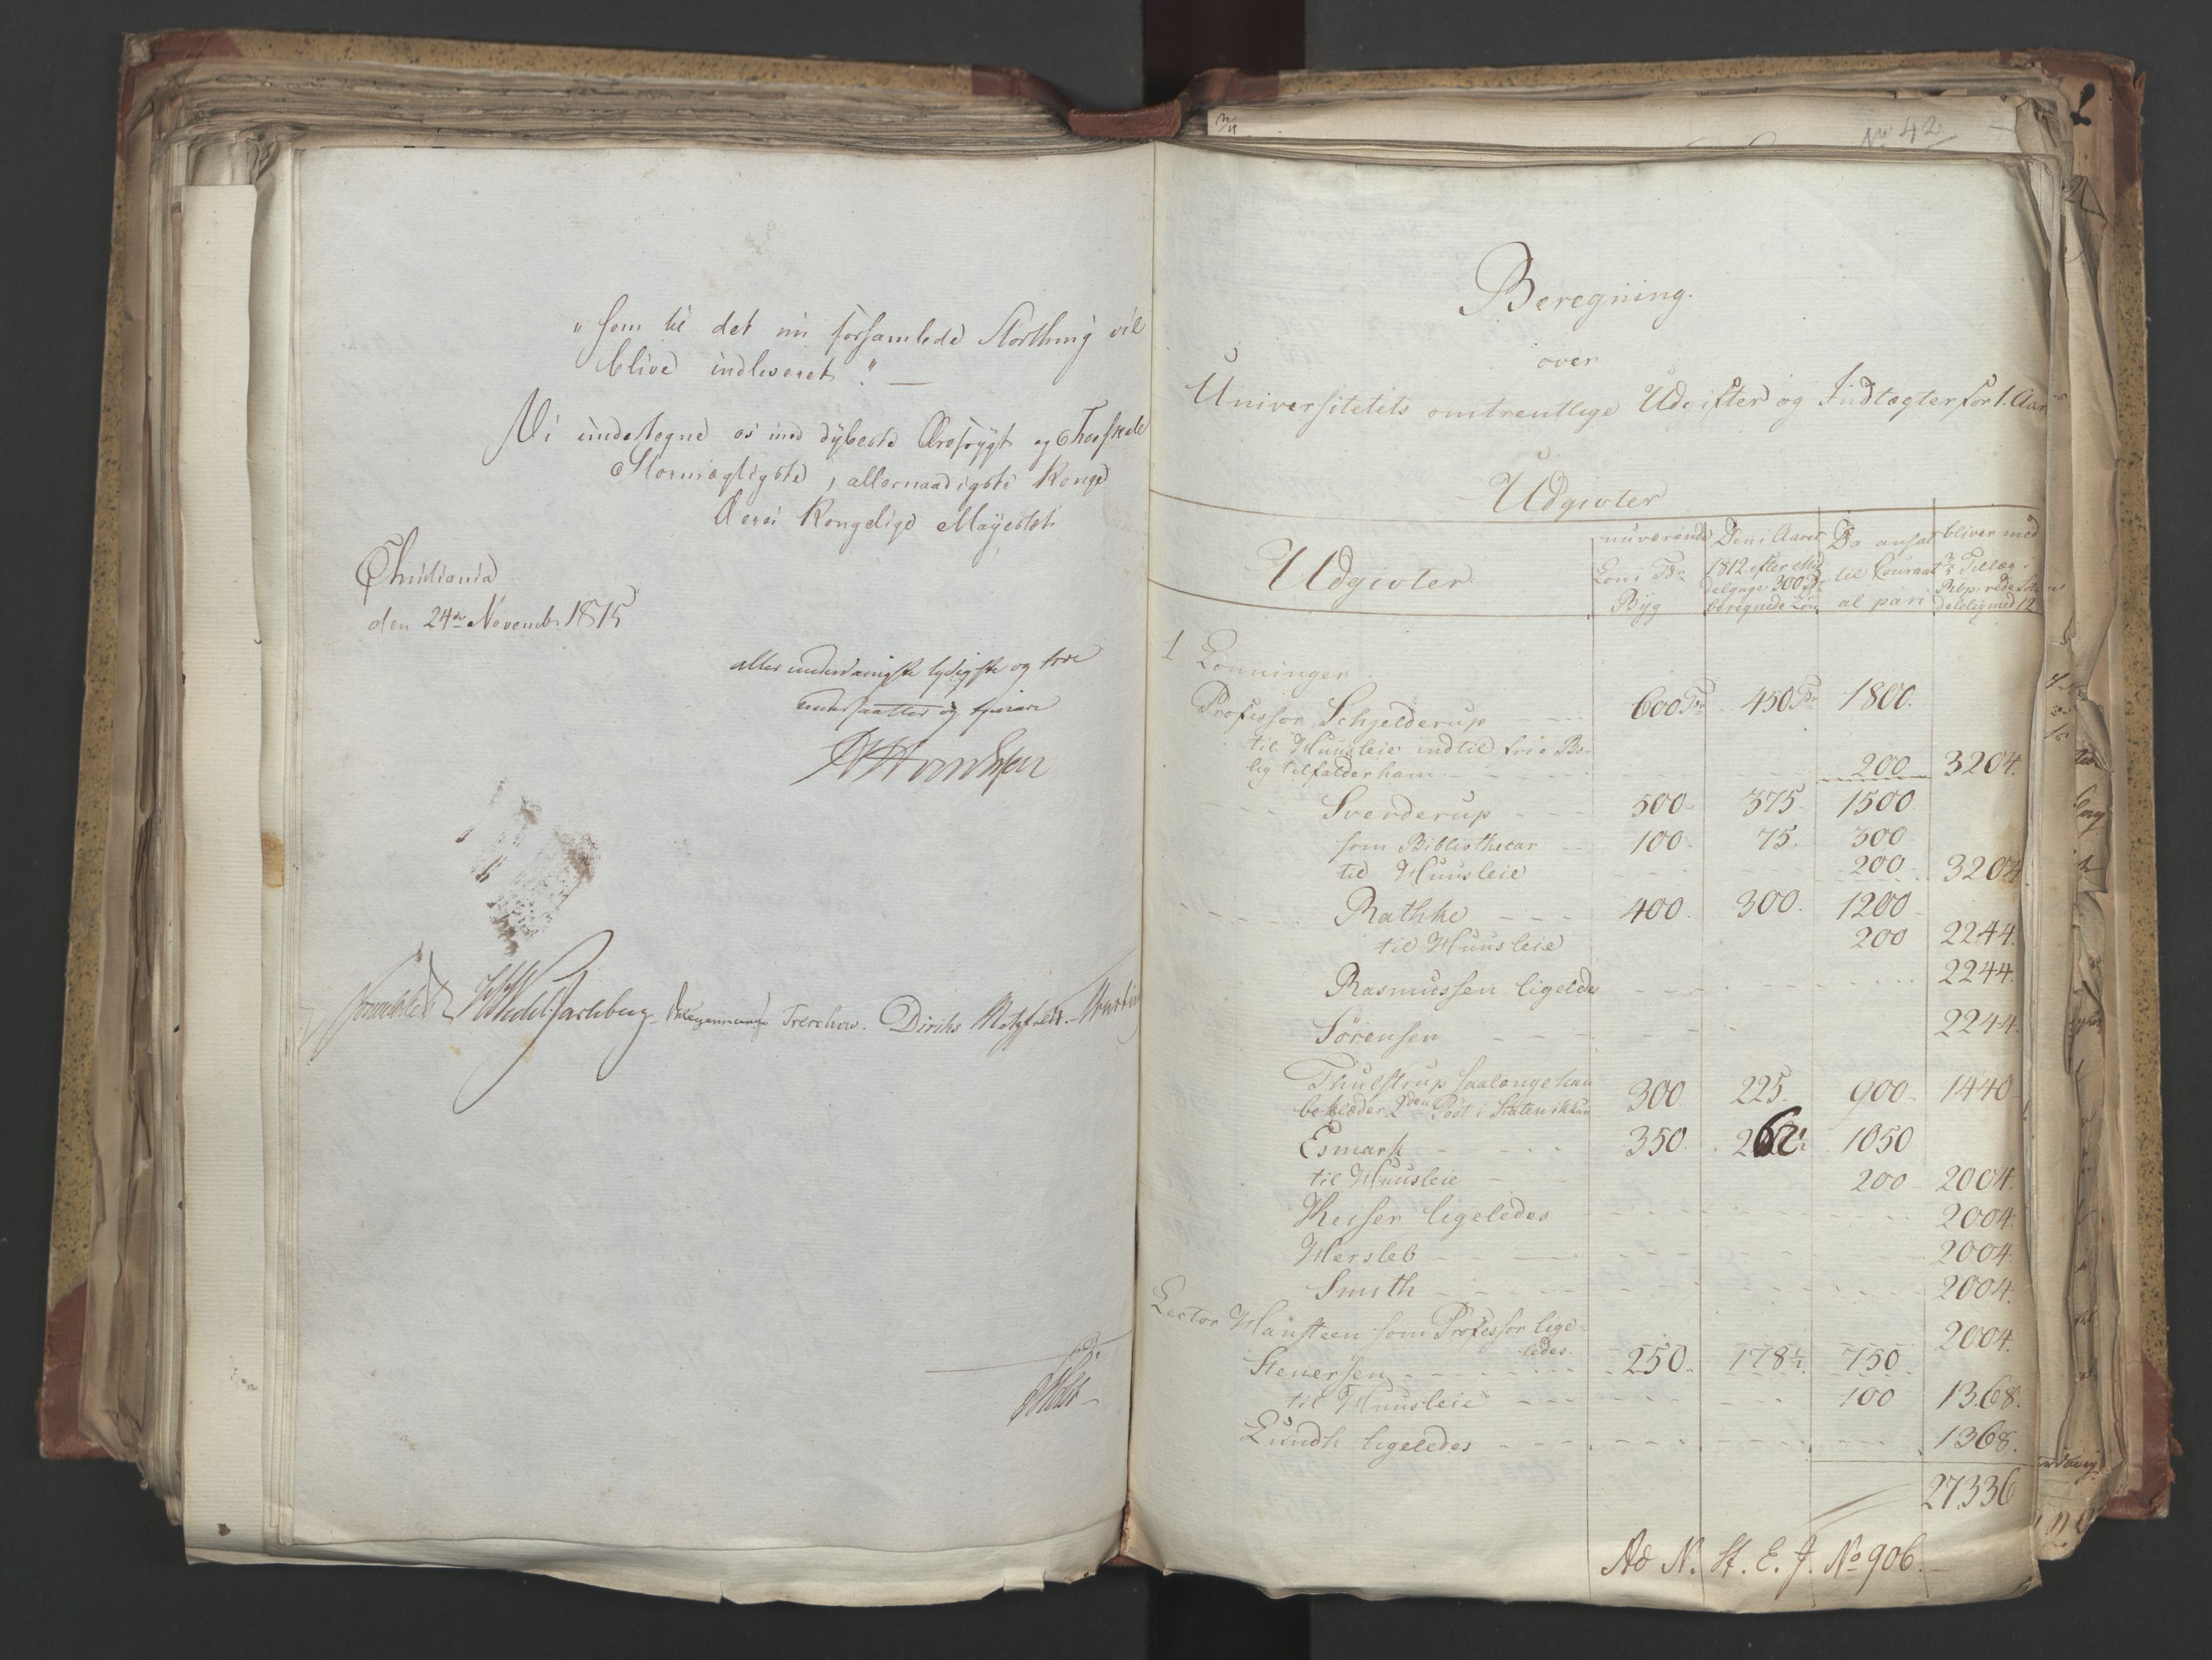 "som til det nu forsamlede Storthing vil
blive indleveret." —
Vi undertegne os med dybeste Ærefrygt og Troeskab
Stormægtigste, allernaadigste Konge
Deres Kongelige Majestæts
Christiania
den 24de Novembr 1815
allerunderdanigste lydigste og troe
undersaatter og tjenere
Sommerhielm HWedel Jarlsberg Hegermann Treschow. Diriks Motzfeldt.
№ 42
Beregning.
over
Universitetets omtrentlige Udgifter og Indtægter for 1. Aar
Udgivter
Udgivter. nuværende Løn i Tdr Byg Den i Aaret 1812 efter Middelpriis 300 beregnede Løn Da ansat til Courant al pari bliver med Tillæg i
1 Lønninger.
Professor Schjelderup - - - 600 Tr 450 Tr 1800.
til Huusleie indtil frie Bo-
lig tilfalder ham. - - - 200 3204.
Sverderup - - - 500. 375. 1500.
som Bibliothecar - - 100. 75. 300
til Huusleie - - - 200. 3204.
Rathke - - - 400. 300. 1200
til Huusleie 200 2244.
Rasmussen ligeledes - - - 2244.
Sörensen - - - 2244.
Thulstrup saalænge han
beklæder 2den Post i Staten ikkun 300 225. 900. 1440
Esmark - - - 350. 262½ 1050
til Huusleie - 200 2004.
Keiser ligeledes - - - 2004.
Hersleb - - - 2004.
Smith - - - 2004.
Lector Hansteen som Professor lige-
ledes. 2004.
Stenersen - - - 250. 178½ 750.
til Huusleie - - - 100 1368.
Lundh ligeledes - - - 1368.
27336
Ad N. St. E. J. No 906.